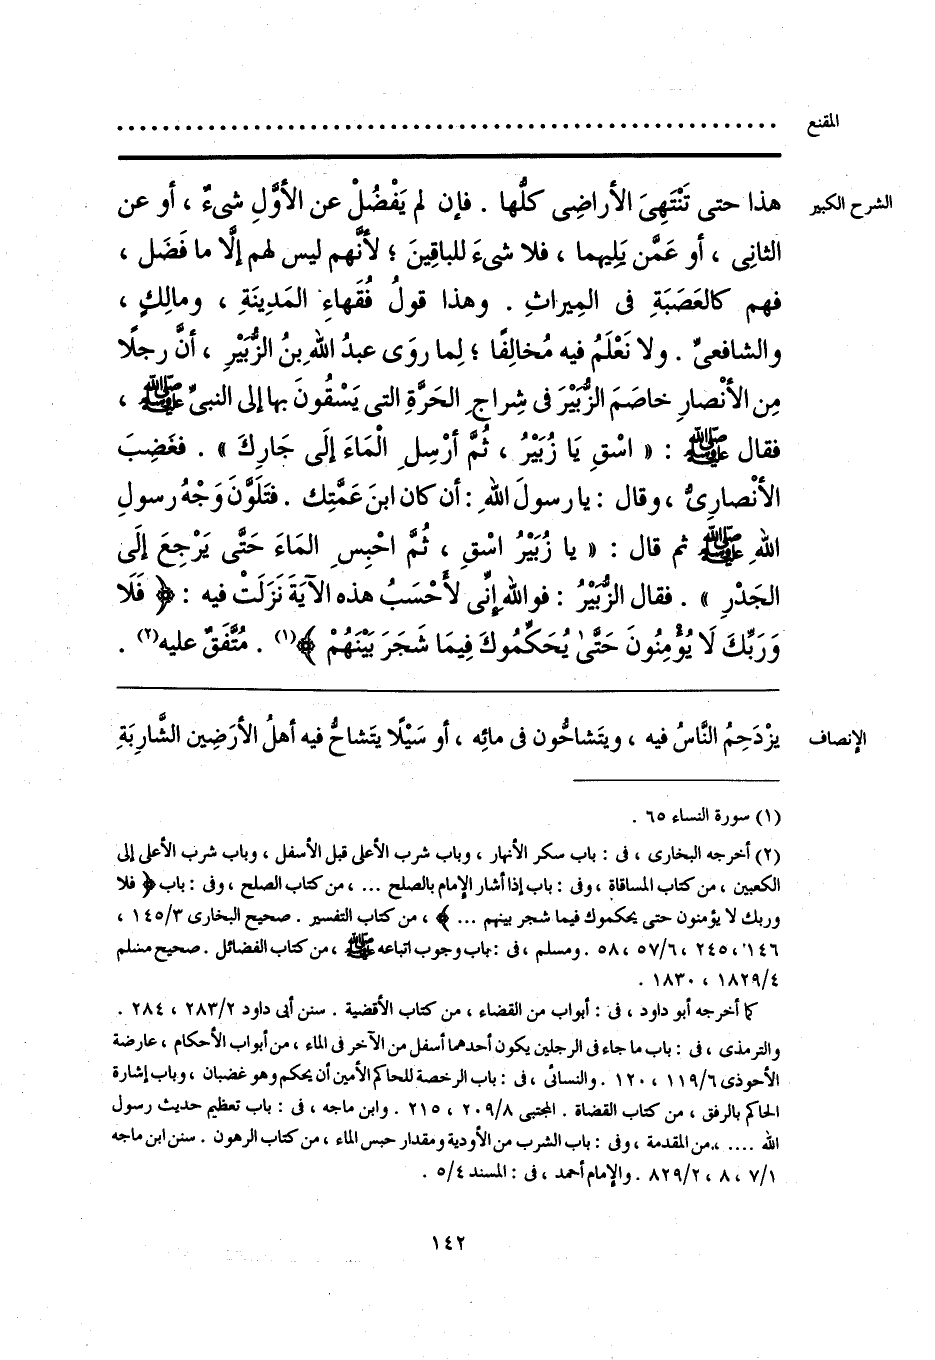 المقنع ................................................
الشرح الكبير هذا حتى تَنْتَهِىَ الأراضِى كلُّها . فإن لم يَفْضُلْ عن الأوَّلِ شىءٌ ، أو عن
الثانِى ، أو عَمَّن يَلِيهما ، فلا شىءَ للباقِينَ ؛ لأنَّهم ليس لهم إلَّا ما فَضَل ،
فهم كالعَصَبَةِ فى المِيراثِ . وهذا قولُ فُقَهاءِ المَدِينَةِ ، ومالِكٍ ،
والشافعىِّ . ولا نَعْلَمُ فيه مُخالِفًا ؛ لِما روَى عبدُ اللهِ بنُ الزُّبَيْرِ ، أنَّ رجلًا
مِن الأنْصارِ خاصَمَ الزُّبَيْرَ فى شِراجِ الحَرَّةِ التى يَسْقُونَ بها إلى النبىِّ ﷺ ،
فقال ﷺ : « اسْقِ يَا زُبَيْرُ ، ثُمَّ أرْسِلِ الْمَاءَ إلَى جَارِكَ » . فغَضِبَ
الأنْصارِىُّ ، وقال : يا رسولَ اللهِ : أن كان ابنَ عَمَّتِك . فتَلَوَّنَ وَجْهُ رسولِ
اللهِ ﷺ ثم قال : « يا زُبَيْرُ اسْقِ ، ثُمَّ احْبِسِ الماءَ حَتَّى يَرْجِعَ إلَى
الجَدْرِ » . فقال الزُّبَيْرُ : فواللهِ إنِّى لأَحْسَبُ هذه الآيَةَ نَزَلَتْ فيه : ﴿ فَلَا
وَرَبِّكَ لَا يُؤْمِنُونَ حَتَّىٰ يُحَكِّمُوكَ فِيمَا شَجَرَ بَيْنَهُمْ ﴾(١) . مُتَّفَقٌ عليه(٢) .
الإنصاف يزْدَحِمُ النَّاسُ فيه ، ويتَشاحُّون فى مائِه ، أو سَيْلًا يتَشاحُّ فيه أهلُ الأرَضِين الشَّارِبَةِ
(١) سورة النساء ٦٥ .
(٢) أخرجه البخارى ، فى : باب سكر الأنهار ، وباب شرب الأعلى قبل الأسفل ، وباب شرب الأعلى إلى
الكعبين ، من كتاب المساقاة ، وفى : باب إذا أشار الإمام بالصلح ... ، من كتاب الصلح ، وفى : باب ﴿ فلا
وربك لا يؤمنون حتى يحكموك فيما شجر بينهم ... ﴾ ، من كتاب التفسير . صحيح البخارى ١٤٥/٣ ،
١٤٦ ، ٢٤٥ ، ٥٧/٦ ، ٥٨ . ومسلم ، فى : باب وجوب اتباعه ﷺ ، من كتاب الفضائل . صحيح مسلم
١٨٢٩/٤ ، ١٨٣٠ .
كما أخرجه أبو داود ، فى : أبواب من القضاء ، من كتاب الأقضية . سنن أبى داود ٢٨٣/٢ ، ٢٨٤ .
والترمذى ، فى : باب ما جاء فى الرجلين يكون أحدهما أسفل من الآخر فى الماء ، من أبواب الأحكام ، عارضة
الأحوذى ١١٩/٦ ، ١٢٠ . والنسائى ، فى : باب الرخصة للحاكم الأمين أن يحكم وهو غضبان ، وباب إشارة
الحاكم بالرفق ، من كتاب القضاة . المجتبى ٢٠٩/٨ ، ٢١٥ . وابن ماجه ، فى : باب تعظيم حديث رسول
الله .... ، من المقدمة ، وفى : باب الشرب من الأودية ومقدار حبس الماء ، من كتاب الرهون . سنن ابن ماجه
٧/١ ، ٨ ، ٨٢٩/٢ . والإمام أحمد ، فى : المسند ٥/٤ .
١٤٢